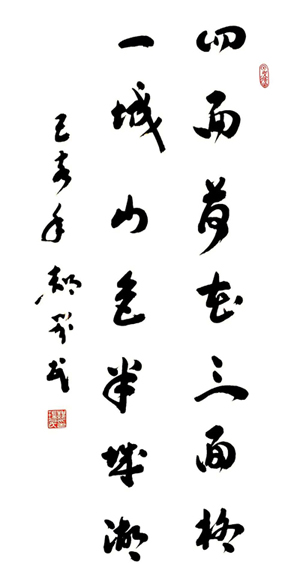 四面荷花三面柳
一城山色半城湖
己亥年